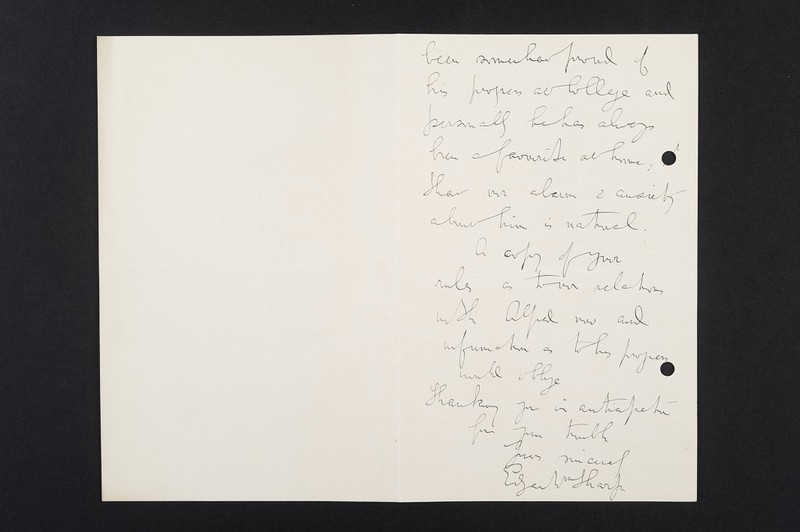 been somewhat proud of
his progress at College and
personally he has always
been a favourite at home,
that our alarm & anxiety
about him is natural.
A copy of your
rules as to our relations
with Alfred now and
information as to his progress
would oblige
Thanking you in anticipation
for your trouble
Yours sincerely
Edgar Wm Sharp